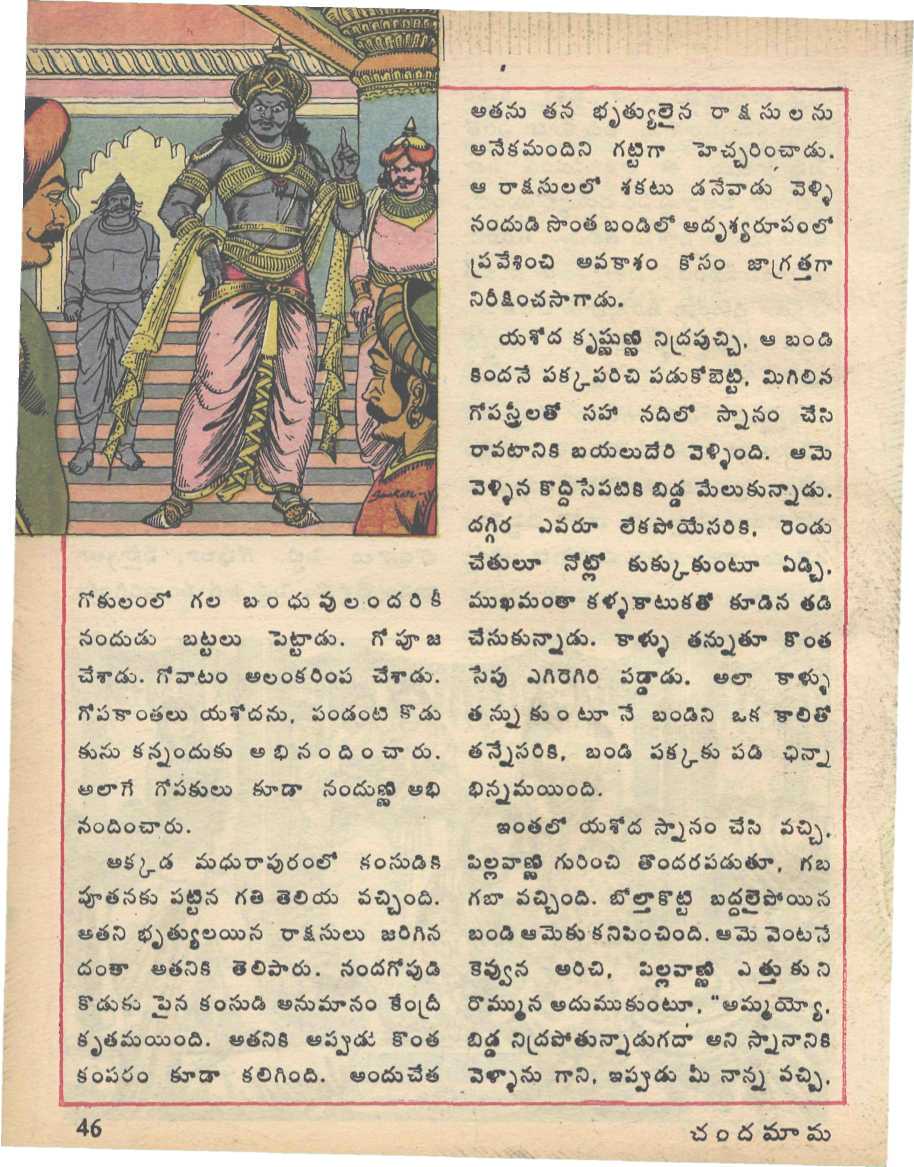 గోకులంలో గల బంధువులందరికీ
నందుడు బట్టలు పెట్టాడు. గోపూజ
చేశాడు. గోవాటం అలంకరింప చేశాడు.
గోపకాంతలు యశోదను, పండంటి కొడు
కును కన్నందుకు అభినందించారు.
అలాగే గోపకులు కూడా నందుణ్ణి అభి
నందించారు.
అక్కడ మధురాపురంలో కంసుడికి
పూతనకు పట్టిన గతి తెలియ వచ్చింది.
అతని భృత్యులయిన రాక్షసులు జరిగిన
దంతా అతనికి తెలిపారు. నందగోపుడి
కొడుకు పైన కంసుడి అనుమానం కేంద్రీ
కృతమయింది. అతనికి అప్పుడు కొంత
కంపరం కూడా కలిగింది. అందుచేత
అతను తన భృత్యులైన రాక్షసులను
అనేకమందిని గట్టిగా హెచ్చరించాడు.
ఆ రాక్షసులలో శకటు డనేవాడు వెళ్ళి
నందుడి సొంత బండిలో అదృశ్యరూపంలో
ప్రవేశించి అవకాశం కోసం జాగ్రత్తగా
నిరీక్షించసాగాడు.
యశోద కృష్ణుణ్ణి నిద్రపుచ్చి, ఆ బండి
కిందనే పక్కపరిచి పడుకోబెట్టి, మిగిలిన
గోపస్త్రీలతో సహా నదిలో స్నానం చేసి
రావటానికి బయలుదేరి వెళ్ళింది. ఆమె
వెళ్ళిన కొద్దిసేపటికి బిడ్డ మేలుకున్నాడు.
దగ్గిర ఎవరూ లేకపోయేసరికి, రెండు
చేతులూ నోట్లో కుక్కుకుంటూ ఏడ్చి,
ముఖమంతా కళ్ళకాటుకతో కూడిన తడి
చేసుకున్నాడు. కాళ్ళు తన్నుతూ కొంత
సేపు ఎగిరెగిరి పడ్డాడు. అలా కాళ్ళు
తన్నుకుంటూనే బండిని ఒక కాలితో
తన్నేసరికి, బండి పక్కకు పడి ఛిన్నా
భిన్నమయింది.
ఇంతలో యశోద స్నానం చేసి వచ్చి,
పిల్లవాణ్ణి గురించి తొందరపడుతూ, గబ
గబా వచ్చింది. బోల్తాకొట్టి బద్దలైపోయిన
బండి ఆమెకు కనిపించింది. ఆమె వెంటనే
కెవ్వున అరిచి, పిల్లవాణ్ణి ఎత్తుకుని
రొమ్మున అదుముకుంటూ, "అమ్మయ్యో,
బిడ్డ నిద్రపోతున్నాడుగదా అని స్నానానికి
వెళ్ళాను గాని, ఇప్పుడు మీ నాన్న వచ్చి,
46
చందమామ